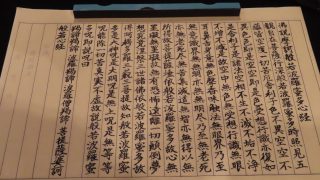 佛説摩訶般若波羅蜜多心経
観自在菩薩行深般若波羅蜜多時照見五
蘊皆空度一切苦厄舎利子色不異空空不
異色色即是空空即是色受想行識亦復如
是舎利子是諸法空相不生不滅不垢不浄
不増不減是故空中無色無受想行識無眼
耳鼻舌身意無色声香味触法無眼界乃至
無意識界無無明亦無無明尽乃至無老死
亦無老死尽無苦集滅道無智亦無得以無
所得故菩提薩埵依般若波羅蜜多故心無
罣礙無罣礙故無有恐怖遠離一切顛倒夢
想究竟涅槃三世諸佛依般若波羅蜜多故
得阿耨多羅三藐三菩提故知般若波羅蜜
多是大神呪是大明呪是無上呪是無等等
呪能除一切苦真実不虚故説般若波羅蜜
多呪即説呪曰
羯諦羯諦波羅羯諦波羅僧羯諦菩提薩婆訶
般若心経